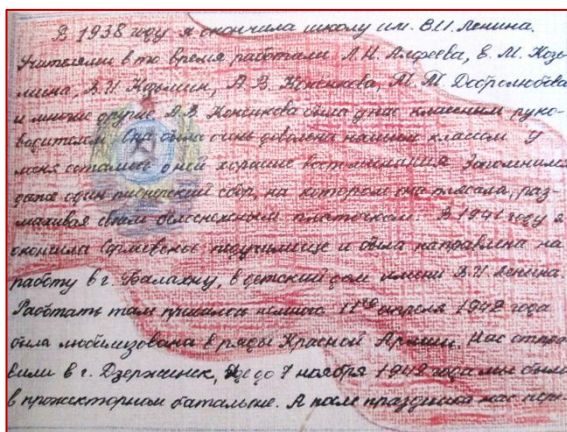 В 1938 году я окончила школу им. В.И. Ленина.
Учителями в то время работали Л.Н. Алфеева, Е.М. Козь-
мина, В.И. Кузьмин, А.В. Кожихова, М.М. Добролюбова
и многие другие. А.В. Кожихова была у нас классным руко-
водителем. Она была очень довольна нашим классом. У
меня остались о ней хорошие воспоминания. Запомнился
даже один пионерский сбор, на котором она плясала, раз-
махивая своим белоснежным платочком. В 1941 году я
окончила Сормовское педучилище и была направлена на
работу в г. Балахну, в детский дом имени В.И. Ленина.
Работать там пришлось немного. 11го апреля 1942 года
была мобилизована в ряды Красной Армии. Нас отпра
вили в г. Дзержинск, где до 7 ноября 1942 года мы были
в прожекторном батальоне. А после праздника нас пере-